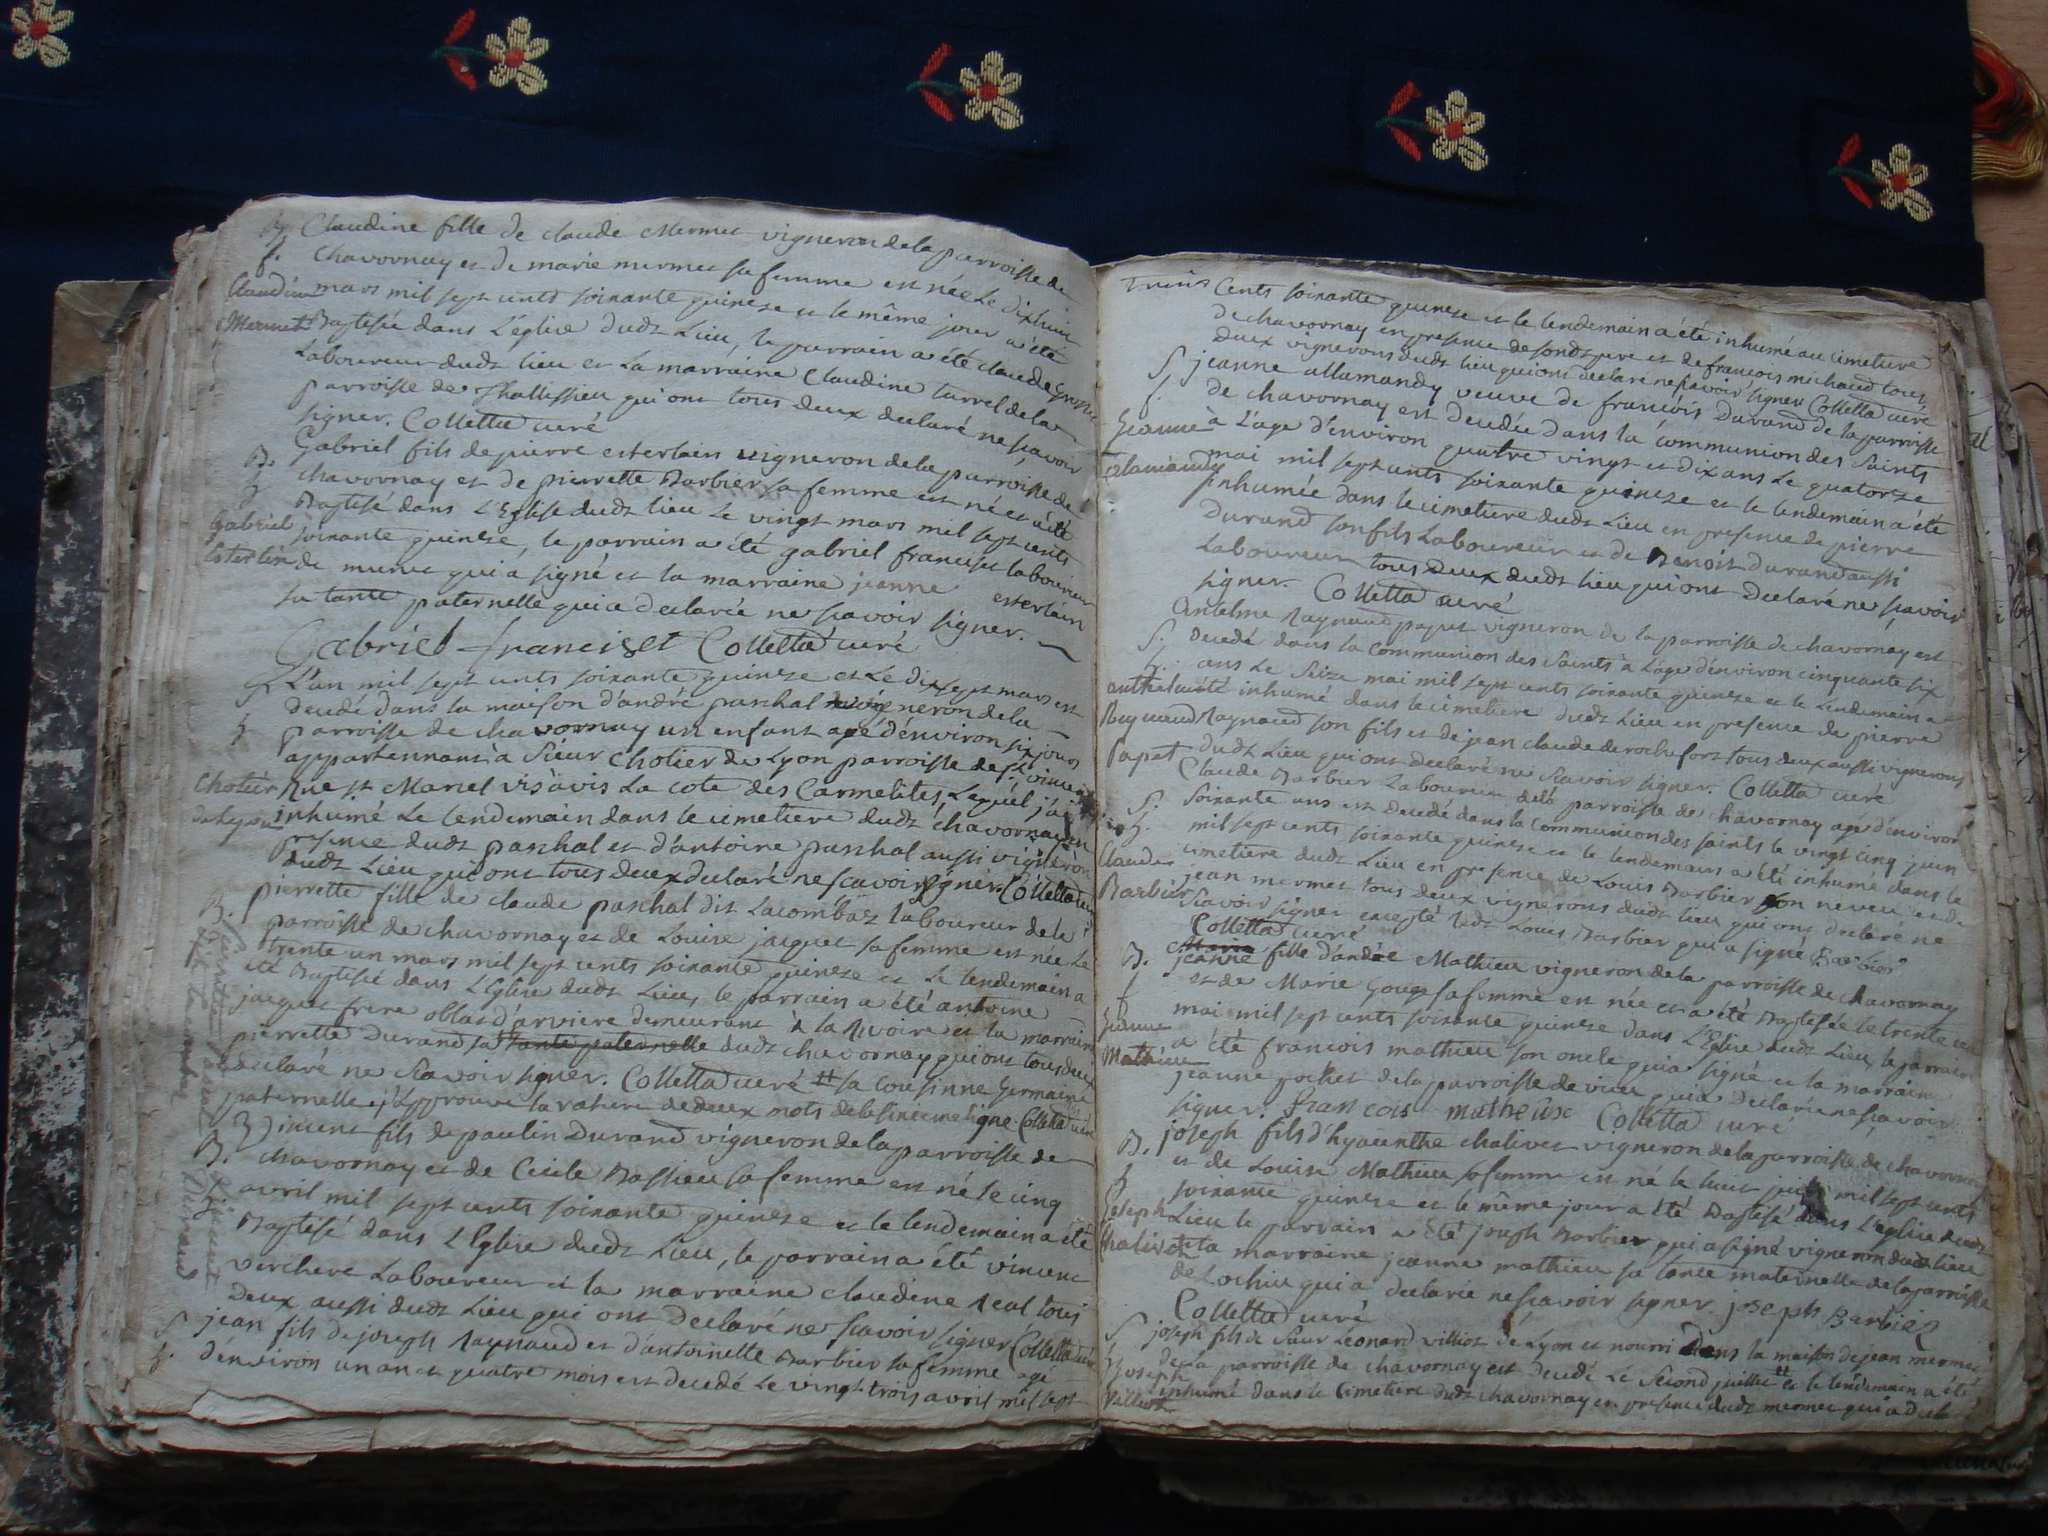 B. Claudine fille de claude Mermet vigneron de la parroisse de
f. chavornay et de marie mermet sa femme est née le dixhuit
Claudine mars mil sept cents soixante quinze et le même jour a été
Mermet Baptisée dans L'église dudt Lieu, le parrain a été claude
Laboureur dudt lieu et La marraine Claudine turrel de la
parroisse de thallissieu qui ont tous deux declaré ne scavoir
signer. Colletta curé
B. Gabriel fils de pierre esterlain vigneron de la parroisse de
f chavornay et de pierrette Barbier sa femme est né et a été
Baptisé dans L'Eglise dudt lieu Le vingt mars mil sept cents
Gabriel soixante quinze, le parrain a été gabriel franciset laboureur
Esterlin de munet qui a signé et la marraine jeanne esterlain
sa tante paternelle qui a declarée ne scavoir signer.
Gabriel franciset Colletta curé
S L'an mil sept cents soixante quinze et Le dix sept mars est
decedé dans la maison d'andré paschal vigneron de la
f parroisse de chavornay un enfant agé d'environ six jours
appartennant à Sieur Chotier de Lyon parroisse de st vincent
Chotier Rue st Marcel vis à vis La cote des Carmelites, Lequel j'ai
de Lyon inhumé Le lendemain dans le cimetiere dudt chavornay en
presence dudt paschal et d'antoine paschal aussi vigneron
dudt Lieu qui ont tous deux declaré ne scavoir signer. Colletta curé
B. pierrette fille de claude paschal dit Lacombaz laboureur de la
parroisse de chavornay et de Louise jacquet sa femme est née Le
f trente un mars mil sept cents soixante quinze et Le lendemain a
Pierrette Pascal
été Baptisée dans L'Eglise dudt Lieu, le parrain a été antoine
jacquet frere oblat d'arviere demeurant à la Rivoire et la marraine
pierrette Durand sa tante paternelle dudt chavornay qui ont tous deux
declaré ne scavoir signer. Colletta curé # sa cousinne Germaine
paternelle, j'approuve la rature de deux mots de la sixieme ligne. Colletta curé
B. Vincent fils de paulin Durand vigneron de la parroisse de
chavornay et de Cécile Bassieu sa femme est né le cinq
f avril mil sept cents soixante quinze et le lendemain a été
Vincent Durand
Baptisé dans L'Eglise dudt Lieu, le parrain a été vincent
verchere Laboureur et la marraine claudine Réal tous
deux aussi dudt Lieu qui ont declaré ne scavoir signer Colletta curé
S jean fils de joseph Raynaud et d'antoinette Barbier sa femme agé
f. d'environ un an et quatre mois est decedé Le vingt trois avril mil sept
Cents soixante quinze et le lendemain a été inhumé au cimetiere
de chavornay en presence de sondt pere et de francois michaud tous
deux vignerons dudt lieu qui ont declaré ne scavoir signer Colletta curé
S. jeanne allamandy veuve de francois Durand de la parroisse
f. de chavornay est decedée dans la communion des Saints
Jeanne à L'age d'environ quatre vingt et dix ans Le quatorze
alamandy mai mil sept cents soixante quinze et le lendemain a été
inhumée dans le cimetiere dudt Lieu en presence de pierre
Durand son fils Laboureur et de Benoit Durand aussi
Laboureur tous deux dudt lieu qui ont declaré ne scavoir
signer. Colletta curé
Anselme Raynaud papet vigneron de la parroisse de chavornay est
S. decedé dans la communion des Saints à L'age d'environ cinquante six
f. ans Le Seize mai mil sept cents soixante quinze et le lendemain a
été inhumé dans le cimetiere dudt Lieu en presence de pierre
Reynaud Raynaud son fils et de jean claude de rochefort tous deux aussi vignerons
Papet dudt Lieu qui ont declaré ne scavoir signer. Colletta curé
Claude Barbier Laboureur de la parroisse de chavornay agé d'environ
S. soixante ans est decedé dans la communion des saints le vingt cinq juin
f. mil sept cents soixante quinze et le lendemain a été inhumé dans le
Claude cimetiere dudt Lieu en presence de Louis Barbier son neveu et de
Barbier jean mermet tous deux vignerons dudt lieu qui ont declaré ne
scavoir signer excepté ledt Louis Barbier qui a signé Barbier
Colletta curé
B. jeanne fille d'andré Mathieu vigneron de la parroisse de chavornay
f et de Marie Gouyz sa femme est née et a été Baptisée le trente un
mai mil sept cents soixante quinze dans L'Eglise dudt Lieu, le parrain
Jeanne a été francois mathieu son oncle qui a signé et la marraine
Mathieu jeanne pochet de la parroisse de vieu qui a declarée ne scavoir
signer. francois matheux Colletta curé
B. joseph fils d'hyacinthe chalivet vigneron de la parroisse de chavornay
f et de Louise Mathieu sa femme est né le huit juin mil sept cents
soixante quinze et le même jour a été Baptisé dans L'eglise dudt
Joseph Lieu le parrain a été joseph Barbier qui a signé vigneron dudt lieu
Chalivet et la marraine jeanne mathieu sa tante maternelle de la parroisse
de Lochieu qui a declarée ne scavoir signer. joseph Barbier
Colletta curé
S joseph fils de Sieur Léonard villiot de Lyon et nourri dans la maison de jean mermet
f de La parroisse de chavornay est decedé Le second juillet # et le lendemain a été
Joseph inhumé dans le Cimetiere dudt chavornay en presence dudt mermet qui a declaré